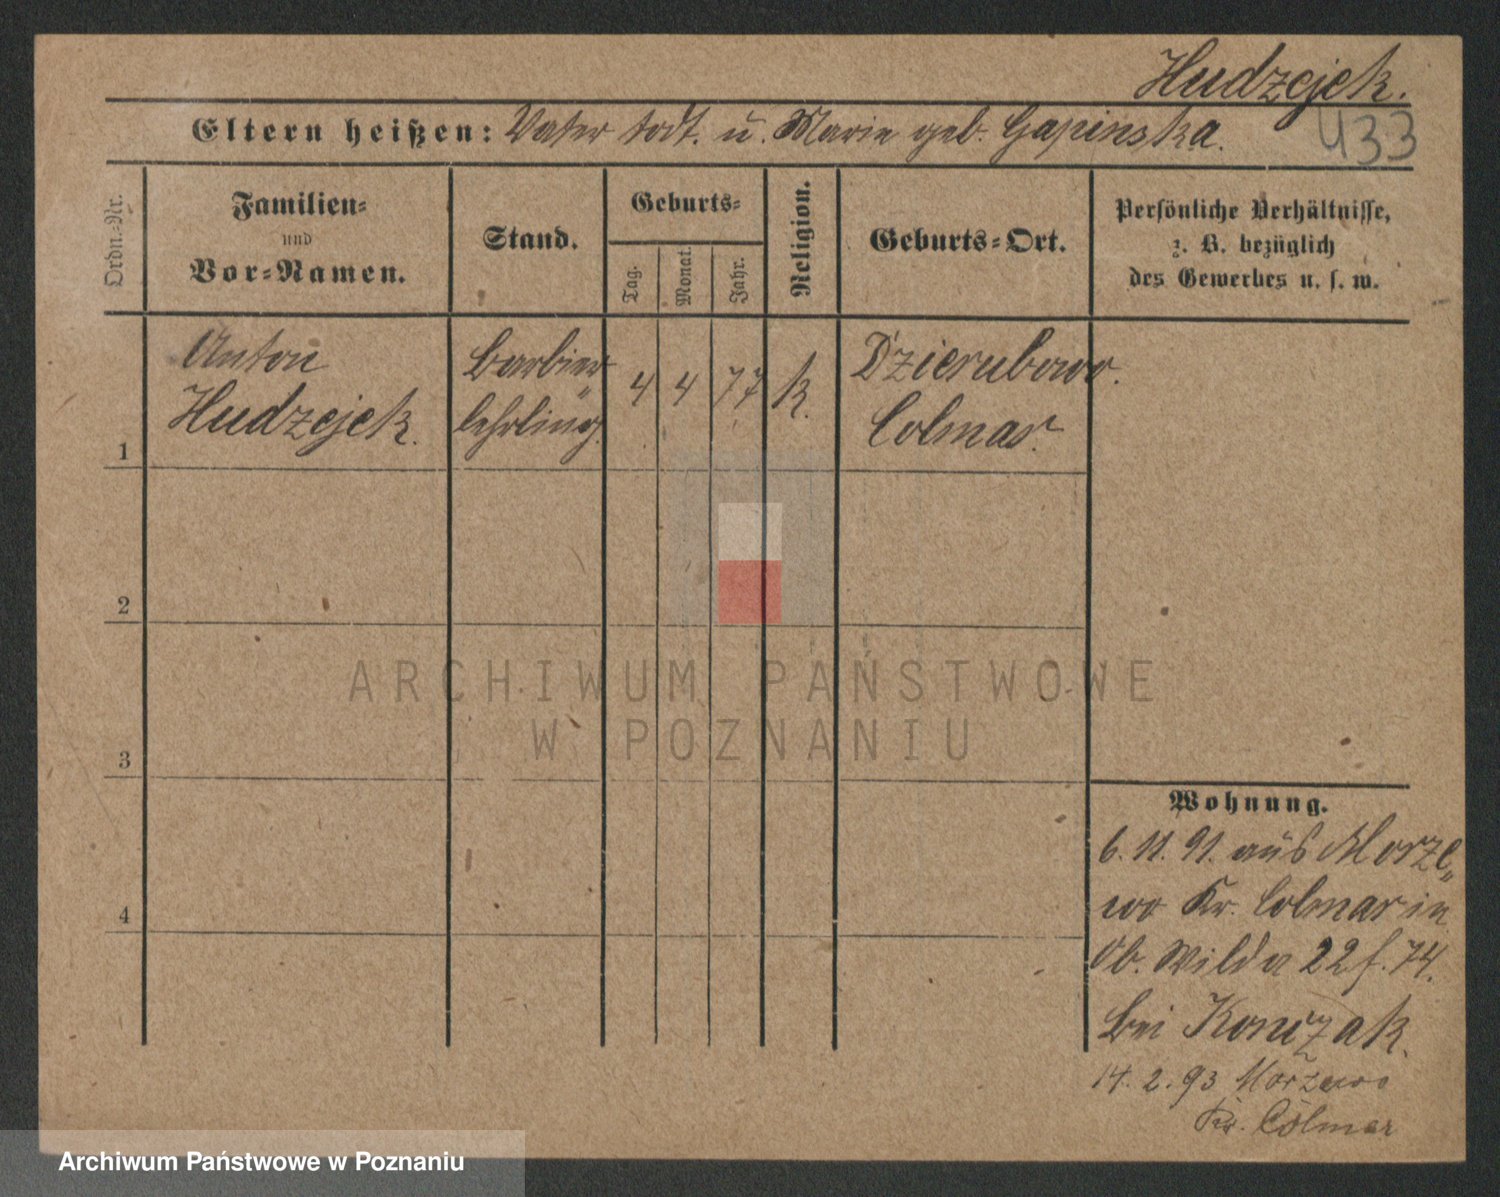 Hudzejek.
433
Eltern heißen: Vater todt. u. Marie geb. Gapinska.
Ordn.-Nr.
Familien-
und
Vor-Namen.
Stand.
Geburts-
Tag.
Monat.
Jahr.
Religion.
Geburts-Ort.
Persönliche Verhältnisse,
z. B. bezüglich
des Gewerbes u. s. w.
1
Anton
Hudzejek.
Barbier
lehrling.
4
4
77
k.
Dzierubowo.
Colmar.
2
3
4
ARCHIWUM PAŃSTWOWE
W POZNANIU
Wohnung.
6. 11. 91. aus Morze„
wo Kr. Colmar in
Ob. Wilda 22 f. 74.
bei Konczak.
14. 2. 93 Morzewo
Kr. Colmar
Archiwum Państwowe w Poznaniu